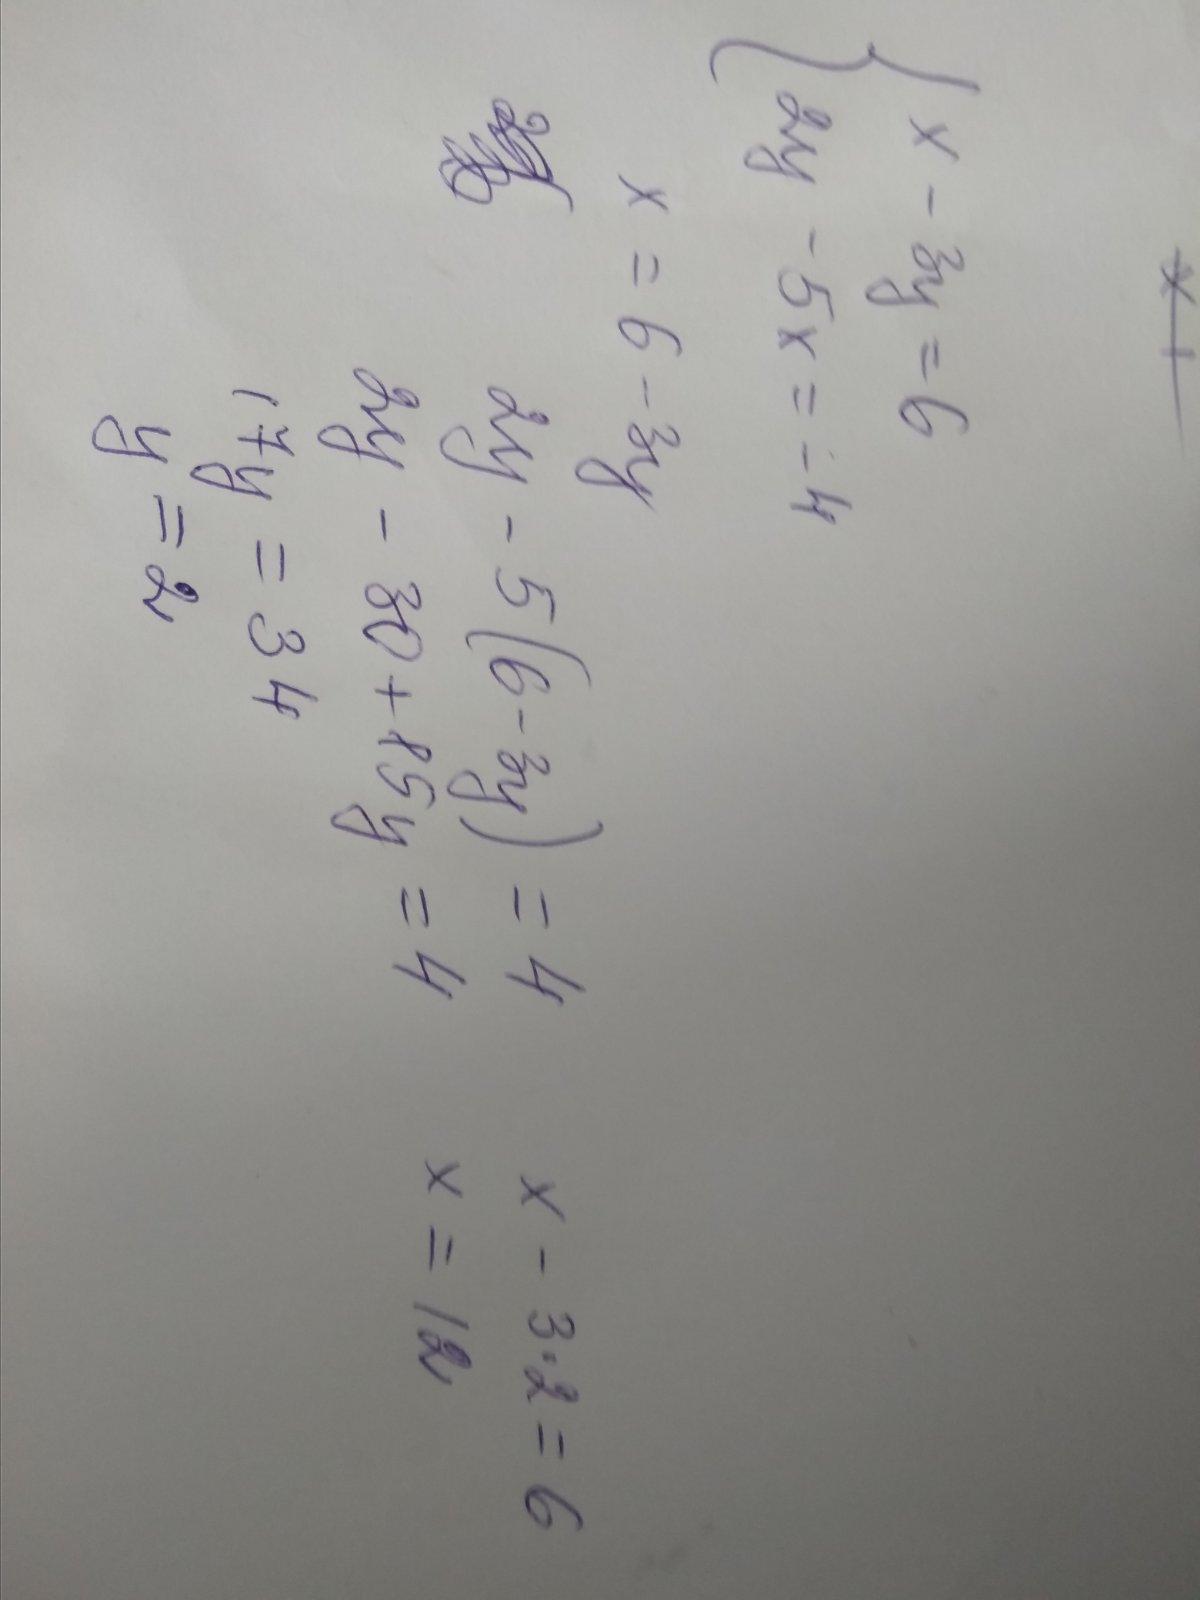 x - 3y = 6
2y - 5x = -4
x = 6 - 3y
2y - 5(6 - 3y) = 4
2y - 30 + 15y = 4
17y = 34
y = 2
x - 3·2 = 6
x = 12